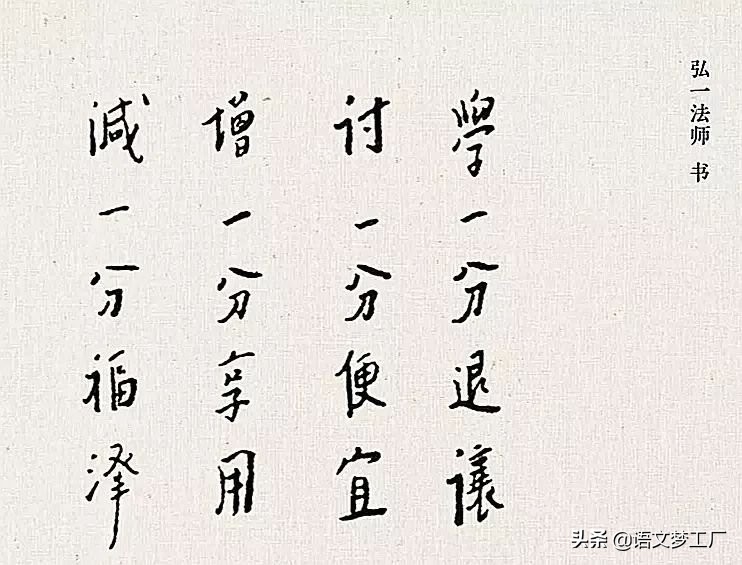 弘一法师 书
學一分退讓
討一分便宜
增一分享用
減一分福澤
头条 @语文梦工厂